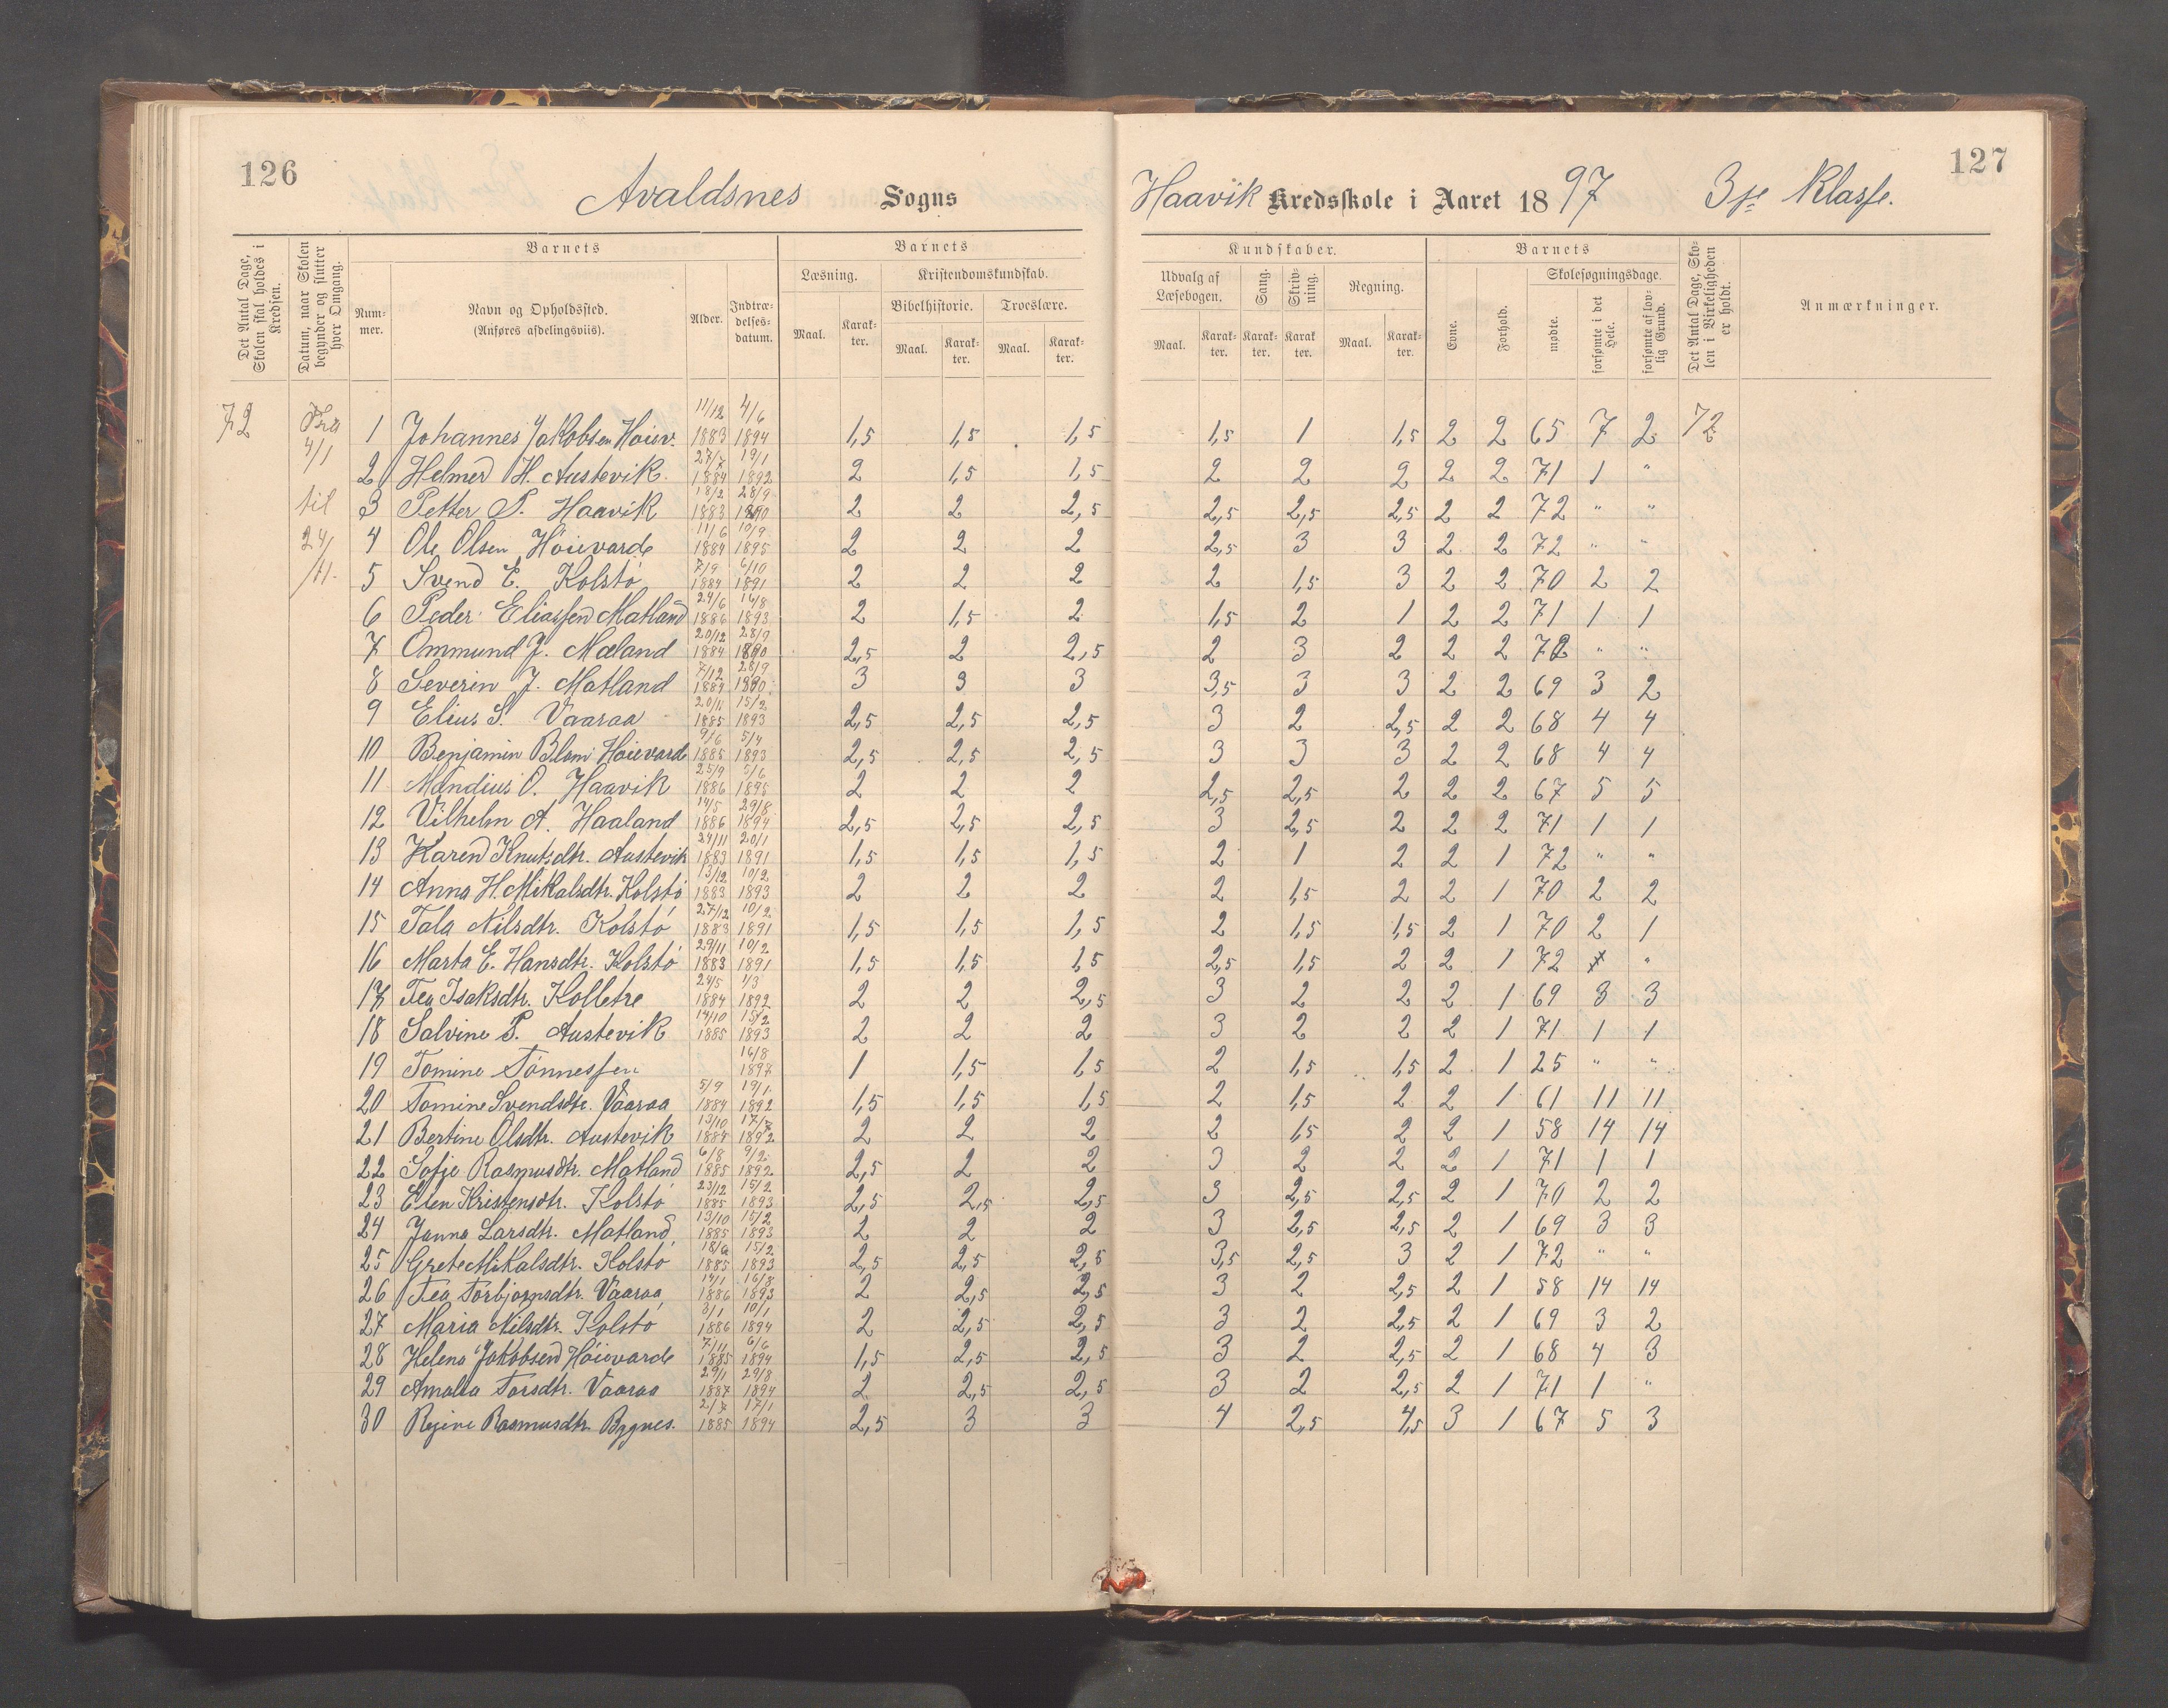 126
Avaldsnes Sogns
Det Antal Dage, Skolen skal holdes i Kredsen.
Datum, naar Skolen begynder og slutter hver Omgang.
Barnets
Num-mer.
Navn og Opholdssted.
(Anføres afdelingsviis).
Alder.
Indtræ-delses-datum.
Barnets
Læsning.
Kristendomskundskab.
Bibelhistorie. Troeslære.
Maal. Karak-ter. Maal. Karak-ter. Maal. Karak-ter.
72 Fra 4/1 til 24/11.
1 Johannes Jakobsen Höiev. 11/12 1883 4/6 1894 1,5 1,5 1,5
2 Helmer H. Austevik 27/7 1884 19/1 1892 2 1,5 1,5
3 Petter P. Haavik 18/2 1883 28/9 1890 2 2 2,5
4 Ole Olsen Höievarde 11/6 1884 10/9 1895 2 2 2
5 Svend E. Kolstö 7/9 1884 6/10 1891 2 2 2
6 Peder Eliassen Matland 24/6 1886 16/8 1893 2 1,5 2
7 Ommund J. Mæland 20/12 1884 28/9 1890 2,5 2 2,5
8 Severin J. Matland 7/12 1884 28/9 1890 3 3 3
9 Elius S. Vaaraa 20/11 1885 15/2 1893 2,5 2,5 2,5
10 Benjamin Blom Höievarde 9/6 1885 5/4 1893 2,5 2,5 2,5
11 Mandius O. Haavik 25/9 1886 5/6 1895 2 2 2
12 Vilhelm A. Haaland 14/5 1886 29/8 1894 2,5 2,5 2,5
13 Karen Knutsdtr. Austevik 24/11 1883 20/1 1891 1,5 1,5 1,5
14 Anna H. Mikalsdtr. Kolstö 13/12 1883 10/2 1893 2 2 2
15 Tala Nilsdtr. Kolstö 27/12 1883 10/2 1891 1,5 1,5 1,5
16 Marta E. Hansdtr. Kolstö 29/11 1883 10/2 1891 1,5 1,5 1,5
17 Tea Isaksdtr. Kolletre 24/5 1884 1/3 1892 2 2 2,5
18 Salvine P. Austevik 14/10 1885 15/2 1893 2 2 2
19 Tomine Tönnessen 16/8 1897 1 1,5 1,5
20 Tomine Svendsdtr. Vaaraa 5/9 1884 19/1 1892 1,5 1,5 1,5
21 Bertine Olsdtr. Austevik 13/10 1884 17/7 1892 2 2 2
22 Sofie Rasmusdtr. Matland 6/8 1885 9/2 1892 2,5 2 2
23 Elen Kristensdtr. Kolstö 23/12 1885 15/2 1893 2,5 2,5 2,5
24 Janna Larsdtr. Matland 13/10 1885 15/2 1893 2 2 2
25 Grete Mikalsdtr. Kolstö 1885 15/2 1893 2,5 2,5 2,5
26 Tea Torbjørnsdtr. Vaaraa 14/1 1886 16/8 1893 2 2,5 2,5
27 Maria Nilsdtr. Kolstö 3/1 1886 10/1 1894 2 2,5 2,5
28 Helena Jakobsen Höievarde 7/11 1885 6/6 1894 1,5 2,5 2,5
29 Amalia Torsdtr. Vaaraa 29/1 1887 29/8 1894 2 2,5 2,5
30 Regine Rasmusdtr. Bygnes. 2/7 1885 17/1 1894 2,5 3 3
127
Haavik Kredsskole i Aaret 1897 3je Klasse.
Kundskaber.
Udvalg af Læsebogen. Sang. Skriv-ning. Regning.
Maal. Karak-ter. Karak-ter. Karak ter. Maal. Karak-ter.
Barnets
Evne. Forhold.
Skolesøgningsdage.
mødte. forsømte i det Hele. forsømte af lov-lig Grund.
Det Antal Dage, Sko-len i Virkeligheden er holdt.
Anmærkninger.
1,5 1 1,5 2 2 65 7 2 72
2 2 2 2 2 71 1 "
2,5 2,5 2,5 2 2 72 " "
2,5 3 3 2 2 72 " "
2 1,5 3 2 2 70 2 2
1,5 2 1 2 2 71 1 1
2 3 2 2 2 72 " "
3,5 3 3 2 2 69 3 2
3 2 2,5 2 2 68 4 4
3 3 3 2 2 68 4 4
2,5 2,5 2 2 2 67 5 5
3 2,5 2 2 2 71 1 1
2 1 2 2 1 72 " "
2 1,5 2 2 1 70 2 2
2 1,5 1,5 2 1 70 2 1
2,5 1,5 2 2 1 72 "
3 2 2 2 1 69 3 3
3 2 2 2 1 71 1 1
2 1,5 1,5 2 1 25 " "
2 1,5 2 2 1 61 11 11
2 1,5 2 2 1 58 14 14
3 2 2 2 1 71 1 1
3 2,5 2,5 2 1 70 2 2
3 2,5 2,5 2 1 69 3 3
3,5 2,5 3 2 1 72 " "
3 2 2,5 2 1 58 14 14
3 2 2,5 2 1 69 3 2
3 2 2,5 2 1 68 4 3
3 2 2,5 2 1 71 1 "
4 2,5 4,5 3 1 67 5 3